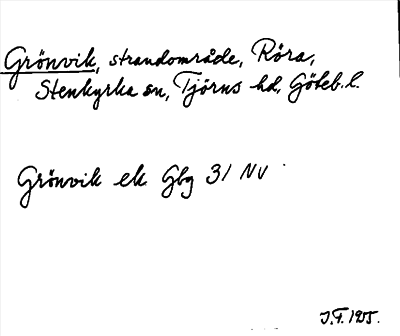 Grönvik, strandområde, Röra,
Stenkyrka sn, Tjörns hd, Göteb. l.
Grönvik ek Gbg 31 NV
J.F. 1955.